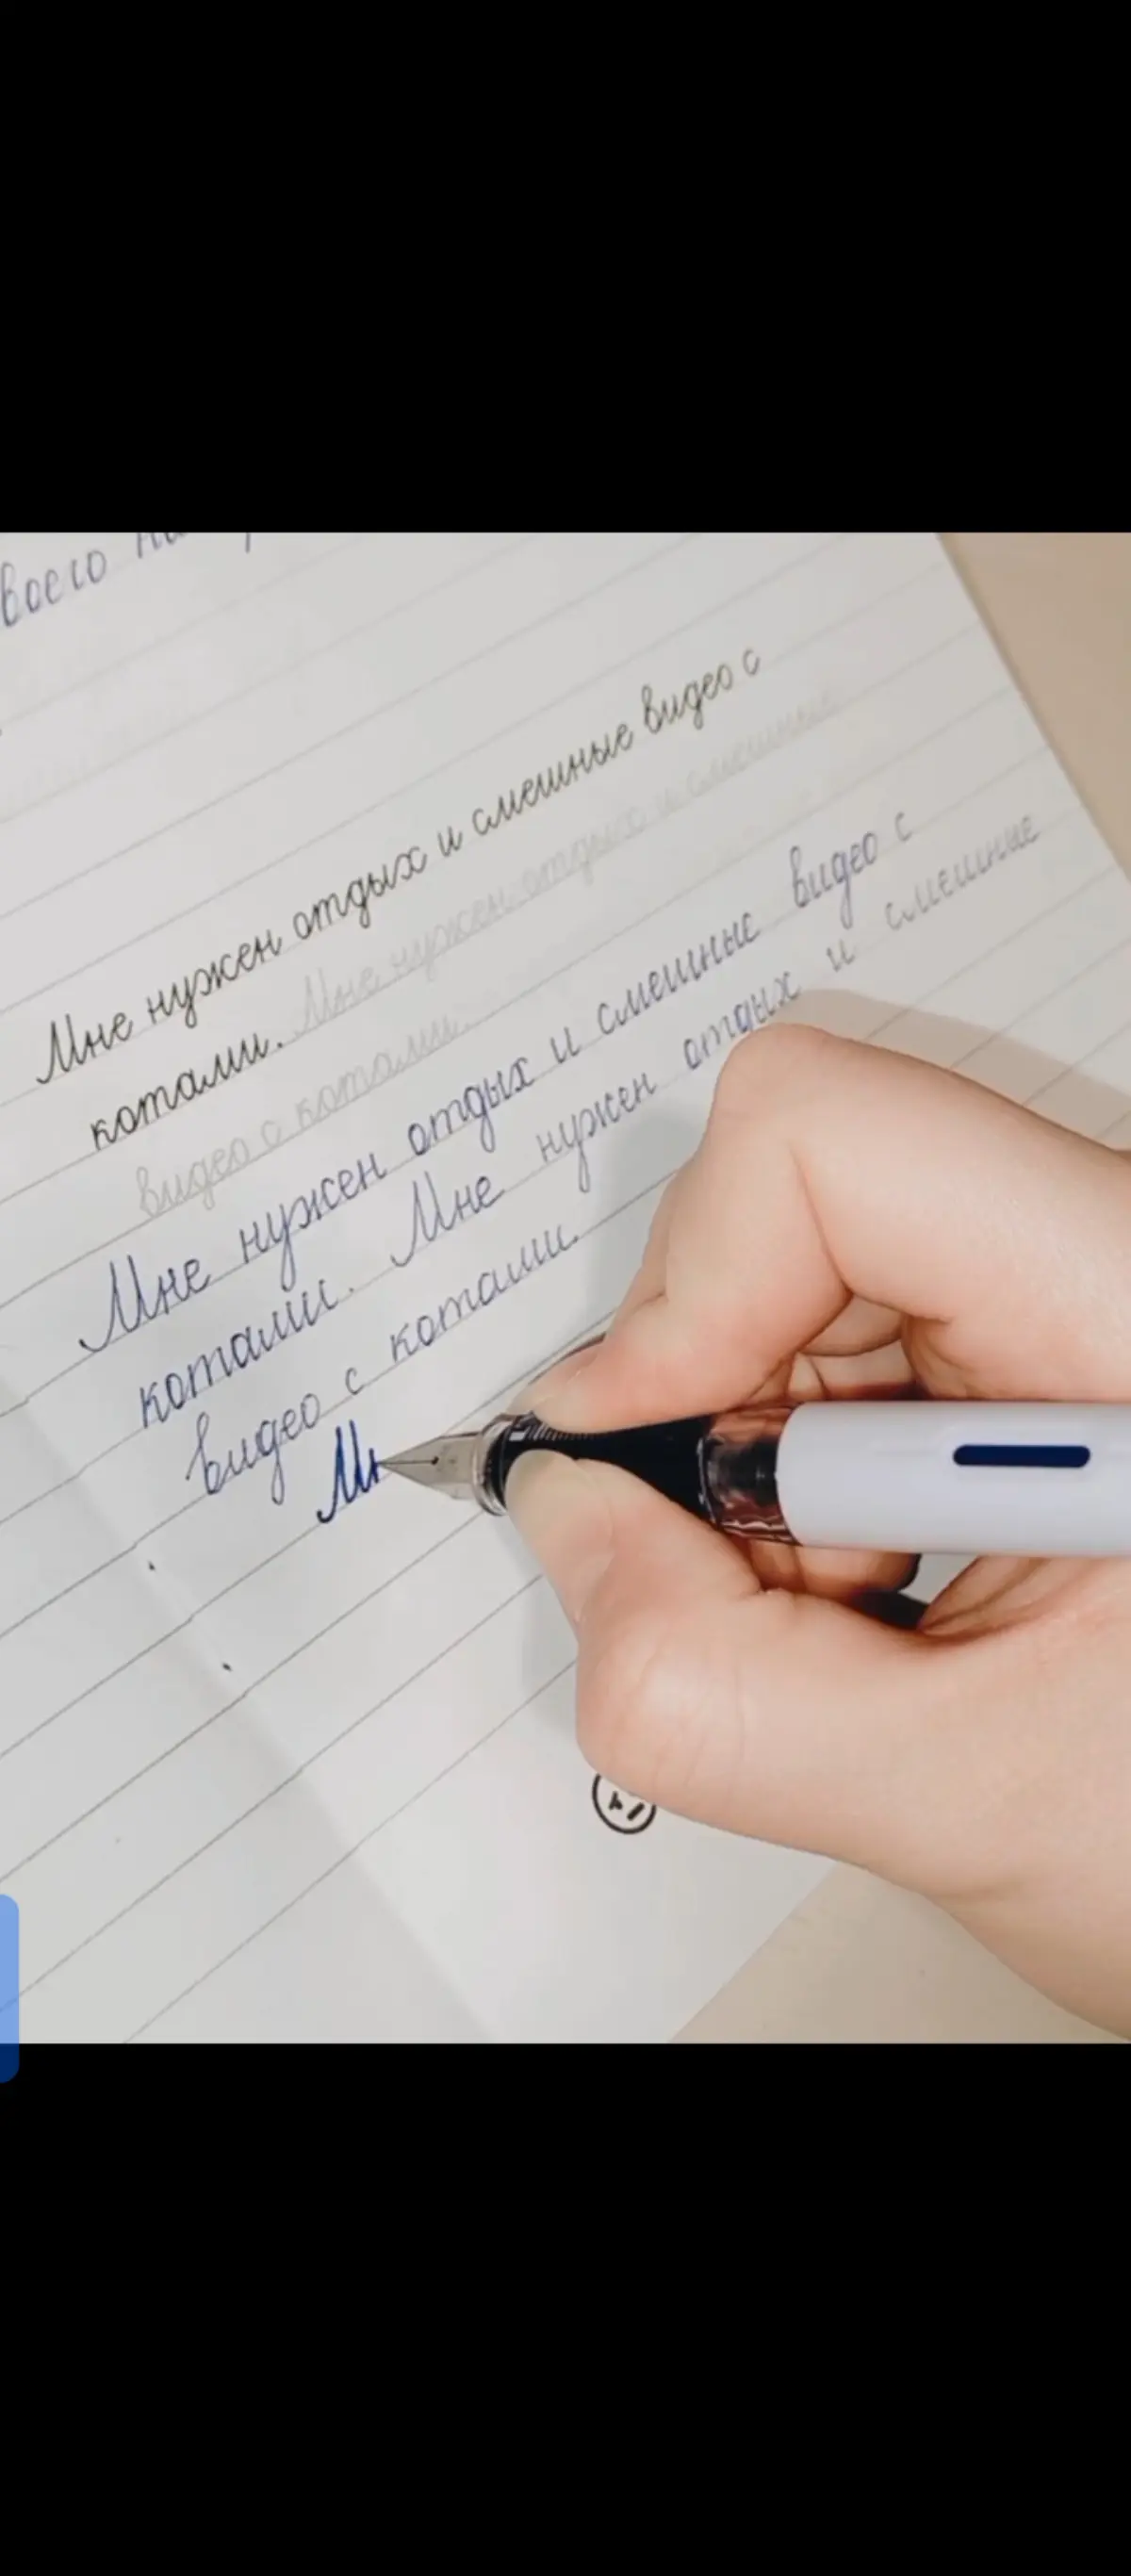 воего
Мне нужен отдых и смешные видео с
котами. Мне нужен отдых и смешные
видео с котами.
Мне нужен отдых и смешные видео с
котами. Мне нужен отдых и смешные
видео с котами.
Мн